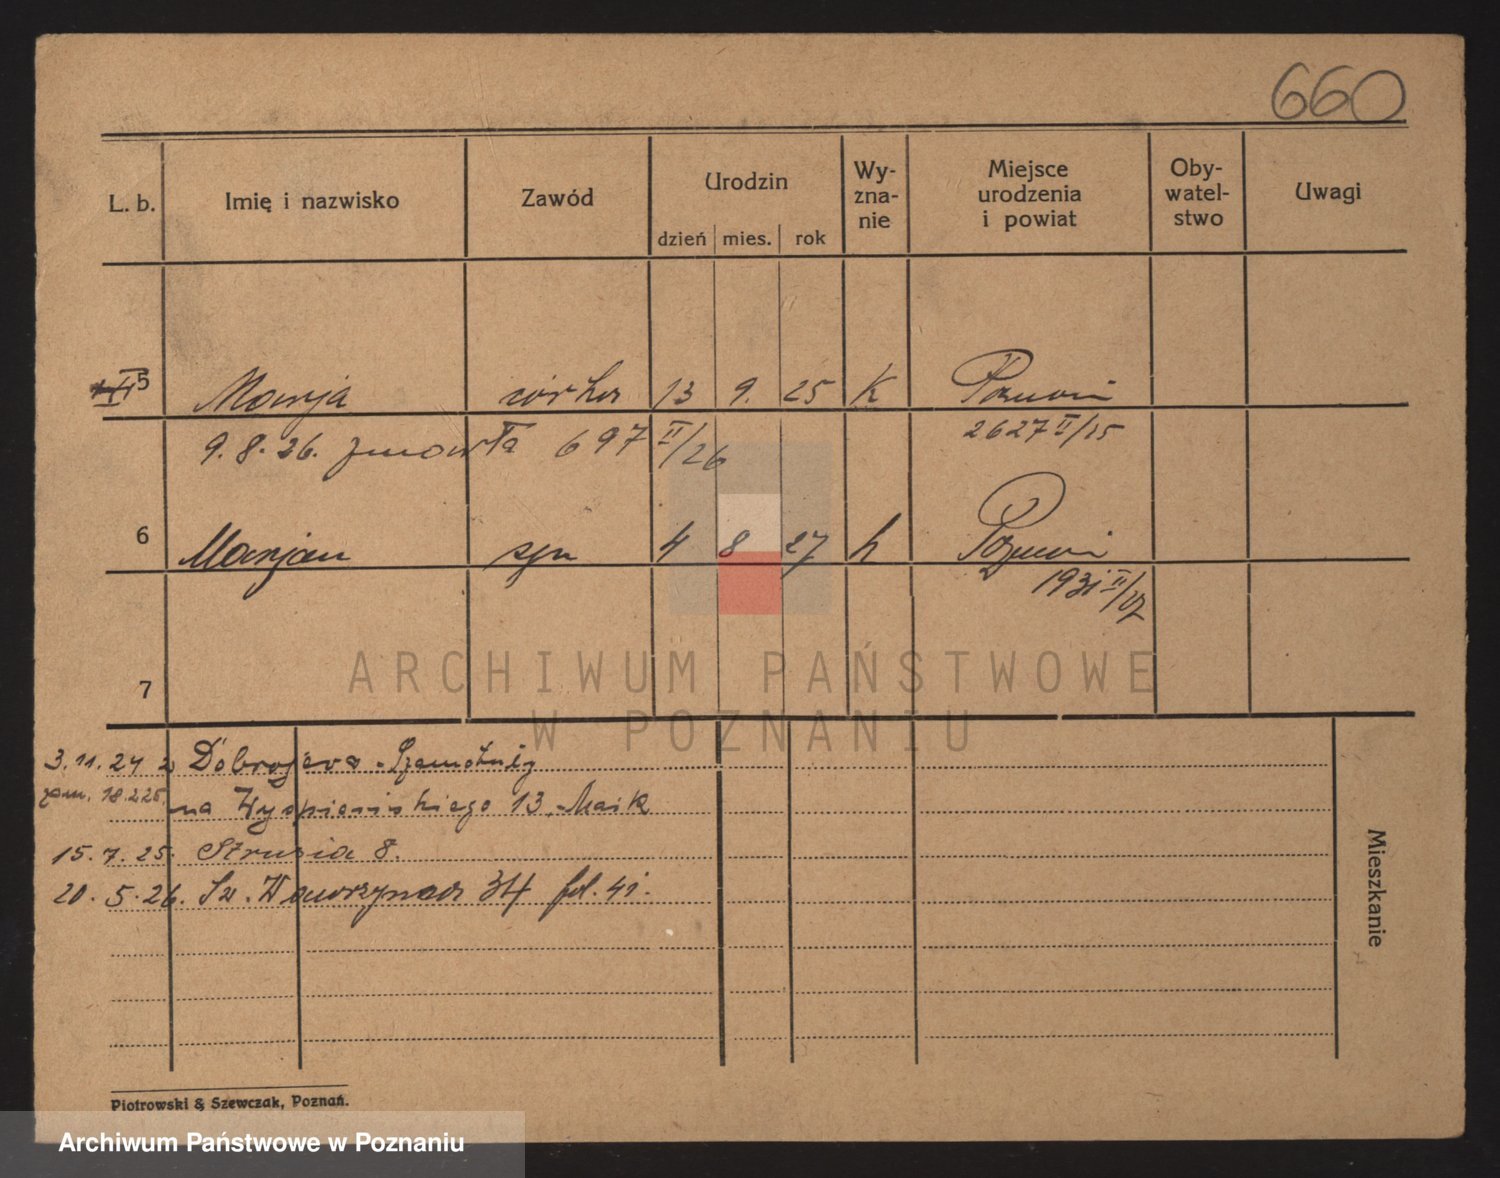 660
L. b. Imię i nazwisko Zawód Urodzin dzień mies. rok Wy- zna- nie Miejsce urodzenia i powiat Oby- watel- stwo Uwagi
5 Marja córka 13 9. 25 K Poznań
9. 8. 26. zmarła 697 II/26 2627 II/25
6 Marjan syn 4 8 27 k Poznań
1931 II/27
7
ARCHIWUM PAŃSTWOWE
W POZNANIU
3. 11. 24 z Dobrojewa - Szamotuły
zam. 18.2.25. na Wyspiańskiego 13.
15. 7. 25. Strusia 8.
20. 5. 26. Św. Wawrzyńca 34
Mieszkanie
Piotrowski & Szewczak, Poznań.
Archiwum Państwowe w Poznaniu